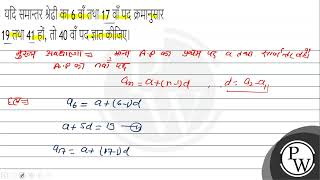 यदि समान्तर श्रेढी का 6 वाँ तथा 17 वाँ पद क्रमानुसार
19 तथा 41 हों, तो 40 वाँ पद ज्ञात कीजिए।
मुख्य अवधारणा ⇒ माना A.P का प्रथम पद a तथा सार्व अन्तर d हो
A.P का nवाँ पद
an = a+(n-1)d , d = a2-a1
a6 = a+(6-1)d
a+5d = 19 - ①
a17 = a+(17-1)d
PW